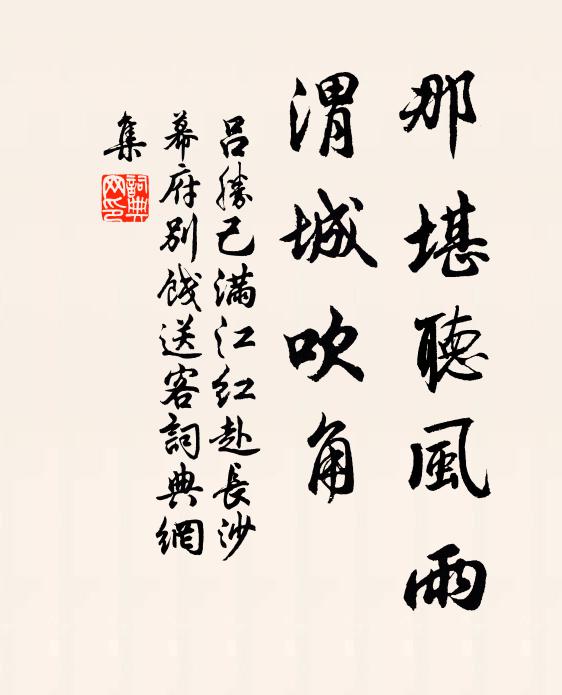 那堪聽風雨
渭城吹角
呂勝己滿江紅赴長沙
幕府別餞送客詞典網
集
詞典
网印